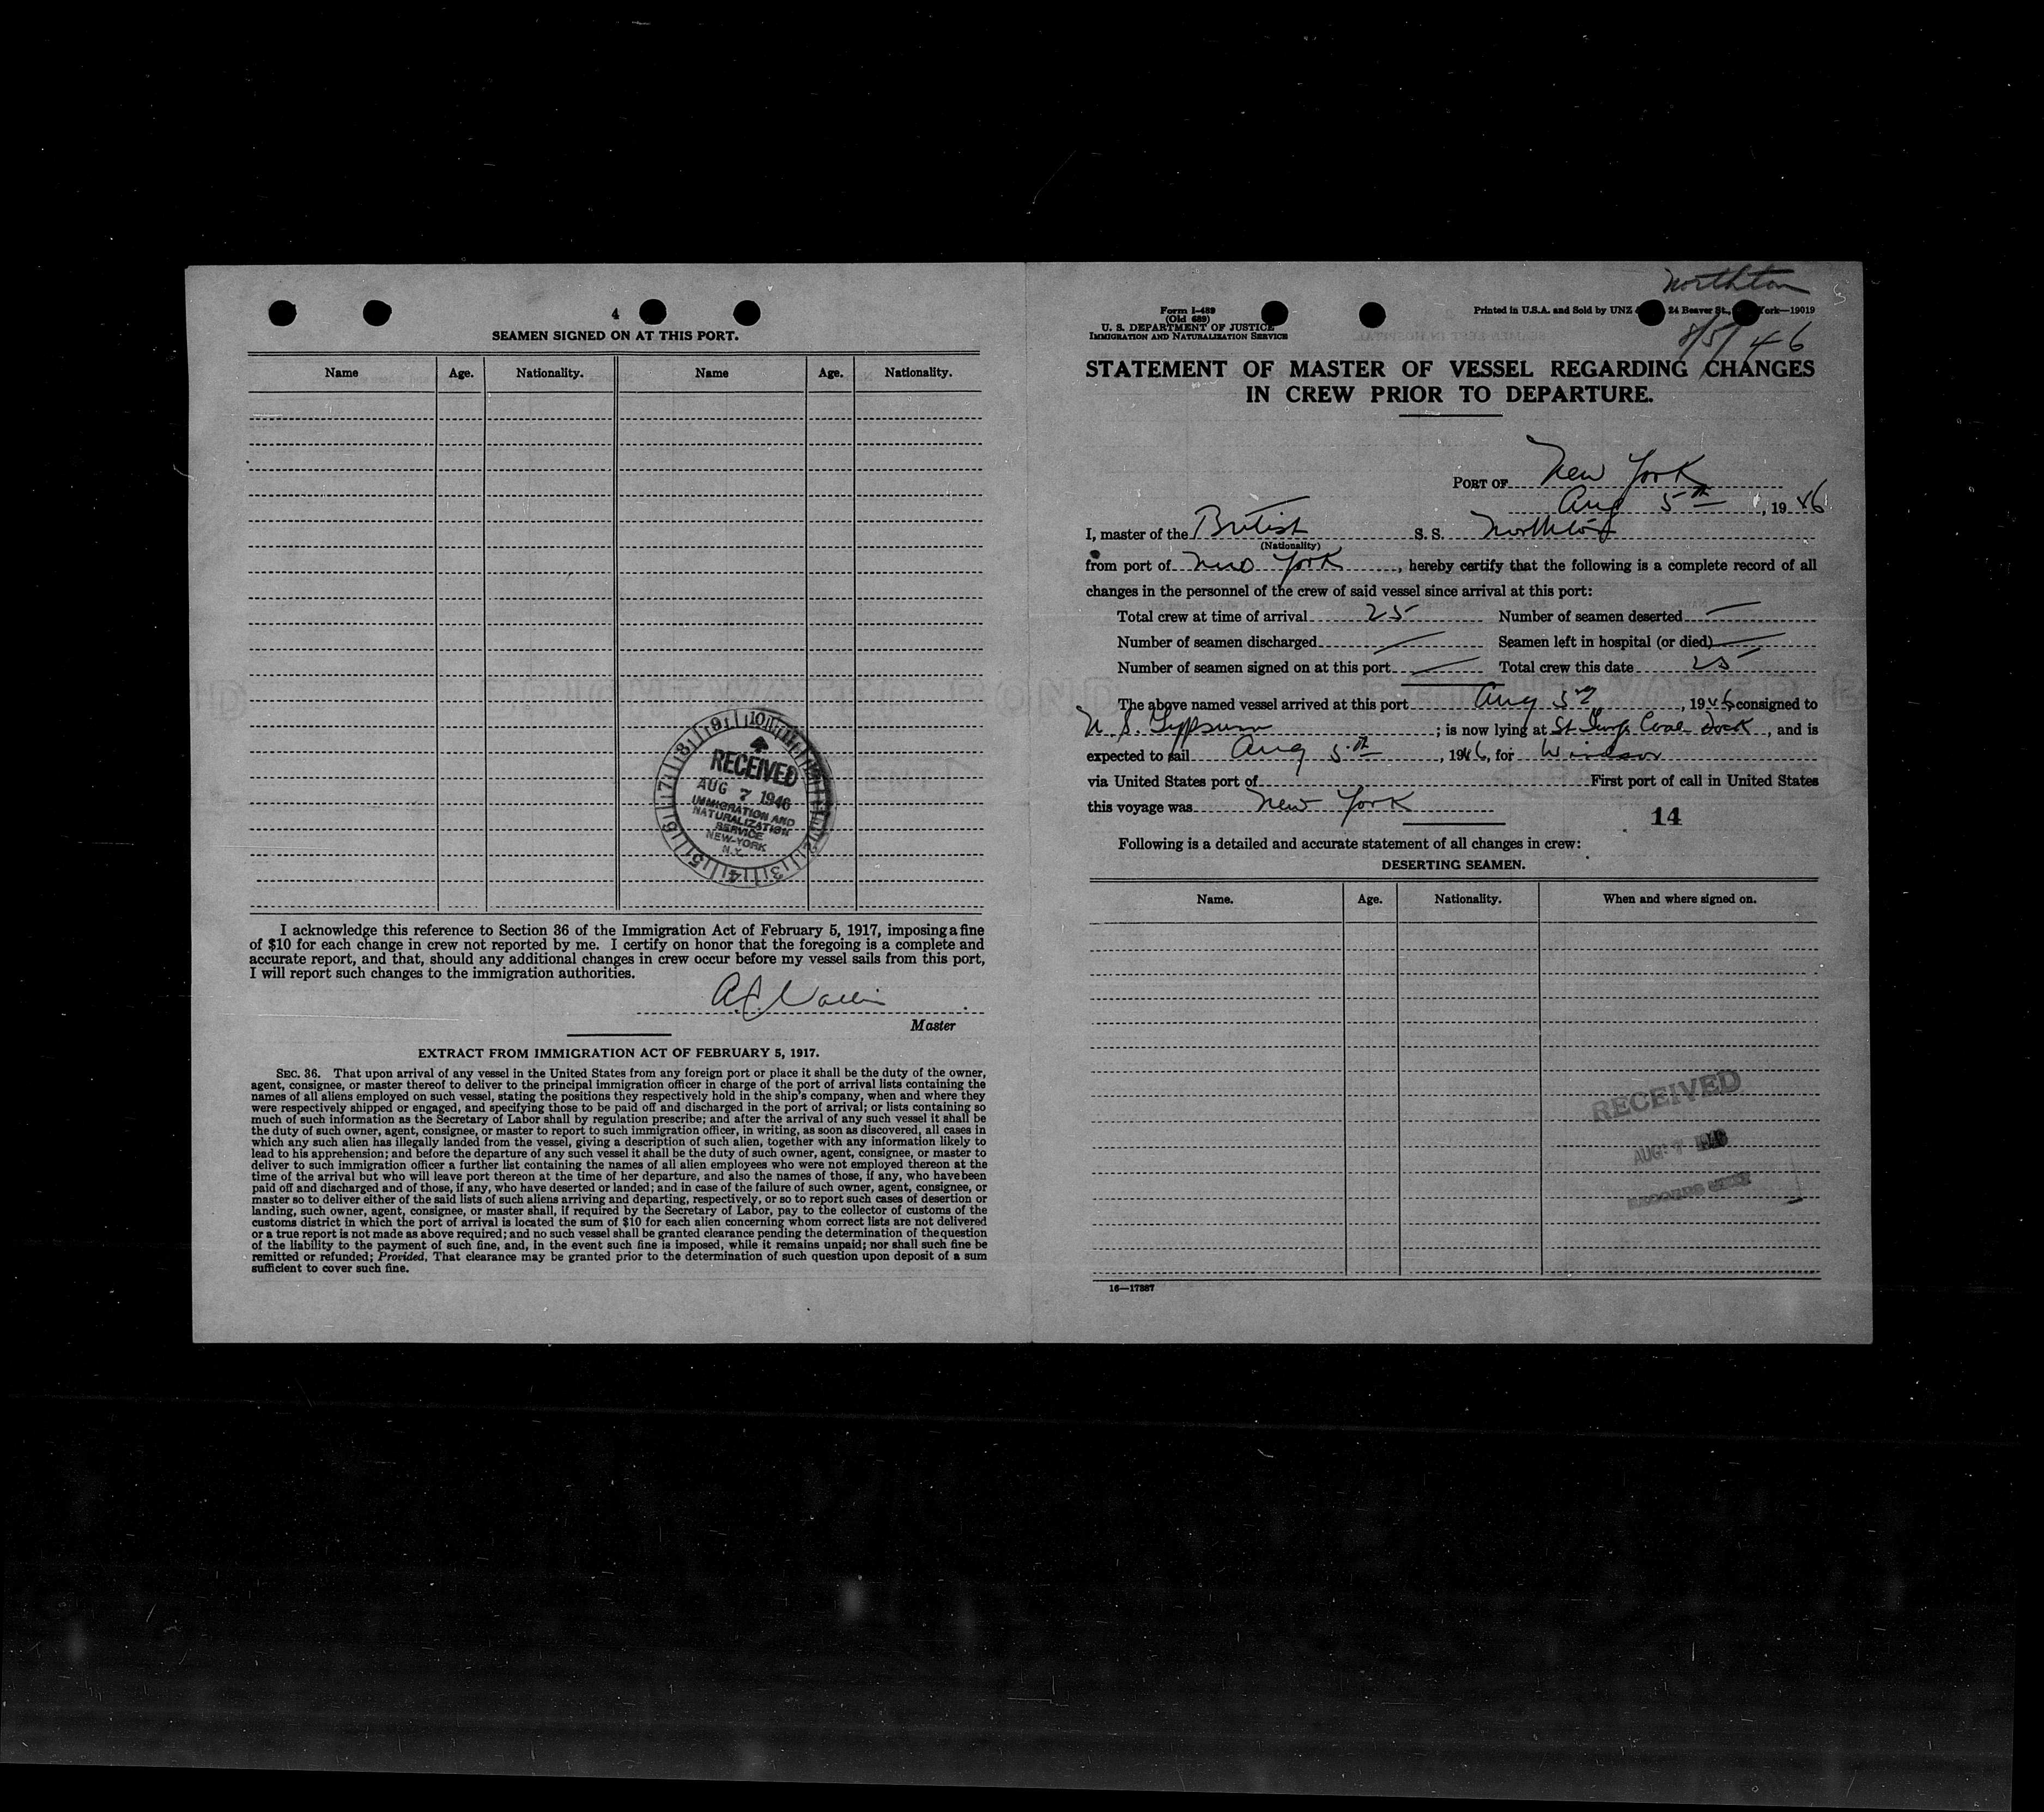 4
SEAMEN SIGNED ON AT THIS PORT.
Name Age. Nationality. Name Age. Nationality.
RECEIVED
AUG 7 1946
IMMIGRATION AND
NATURALIZATION
SERVICE
NEW-YORK
N.Y.
I acknowledge this reference to Section 36 of the Immigration Act of February 5, 1917, imposing a fine
of $10 for each change in crew not reported by me. I certify on honor that the foregoing is a complete and
accurate report, and that, should any additional changes in crew occur before my vessel sails from this port,
I will report such changes to the immigration authorities.
Master
EXTRACT FROM IMMIGRATION ACT OF FEBRUARY 5, 1917.
SEC. 36. That upon arrival of any vessel in the United States from any foreign port or place it shall be the duty of the owner,
agent, consignee, or master thereof to deliver to the principal immigration officer in charge of the port of arrival lists containing the
names of all aliens employed on such vessel, stating the positions they respectively hold in the ship's company, when and where they
were respectively shipped or engaged, and specifying those to be paid off and discharged in the port of arrival; or lists containing so
much of such information as the Secretary of Labor shall by regulation prescribe; and after the arrival of any such vessel it shall be
the duty of such owner, agent, consignee, or master to report to such immigration officer, in writing, as soon as discovered, all cases in
which any such alien has illegally landed from the vessel, giving a description of such alien, together with any information likely to
lead to his apprehension; and before the departure of any such vessel it shall be the duty of such owner, agent, consignee, or master to
deliver to such immigration officer a further list containing the names of all alien employees who were not employed thereon at the
time of the arrival but who will leave port thereon at the time of her departure, and also the names of those, if any, who have been
paid off and discharged and of those, if any, who have deserted or landed; and in case of the failure of such owner, agent, consignee, or
master so to deliver either of the said lists of such aliens arriving and departing, respectively, or so to report such cases of desertion or
landing, such owner, agent, consignee, or master shall, if required by the Secretary of Labor, pay to the collector of customs of the
customs district in which the port of arrival is located the sum of $10 for each alien concerning whom correct lists are not delivered
or a true report is not made as above required; and no such vessel shall be granted clearance pending the determination of the question
of the liability to the payment of such fine, and, in the event such fine is imposed, while it remains unpaid; nor shall such fine be
remitted or refunded; Provided, That clearance may be granted prior to the determination of such question upon deposit of a sum
sufficient to cover such fine.
Northton
8/5/46
Form I-489
(Old 689)
U. S. DEPARTMENT OF JUSTICE
IMMIGRATION AND NATURALIZATION SERVICE
Printed in U.S.A. and Sold by UNZ 24 Beaver St., York—19019
STATEMENT OF MASTER OF VESSEL REGARDING CHANGES
IN CREW PRIOR TO DEPARTURE.
PORT OF New York
Aug 5th, 1946
I, master of the British S. S. Northton
(Nationality)
from port of New York, hereby certify that the following is a complete record of all
changes in the personnel of the crew of said vessel since arrival at this port:
Total crew at time of arrival 25 Number of seamen deserted —
Number of seamen discharged — Seamen left in hospital (or died) —
Number of seamen signed on at this port — Total crew this date 25
The above named vessel arrived at this port Aug, 1946 consigned to
U. S. Gypsum; is now lying at St Coal Dock, and is
expected to sail Aug 5th, 1946, for Windsor
via United States port of First port of call in United States
this voyage was New York
14
Following is a detailed and accurate statement of all changes in crew:
DESERTING SEAMEN.
Name. Age. Nationality. When and where signed on.
RECEIVED
AUG 7 1946
16—17887